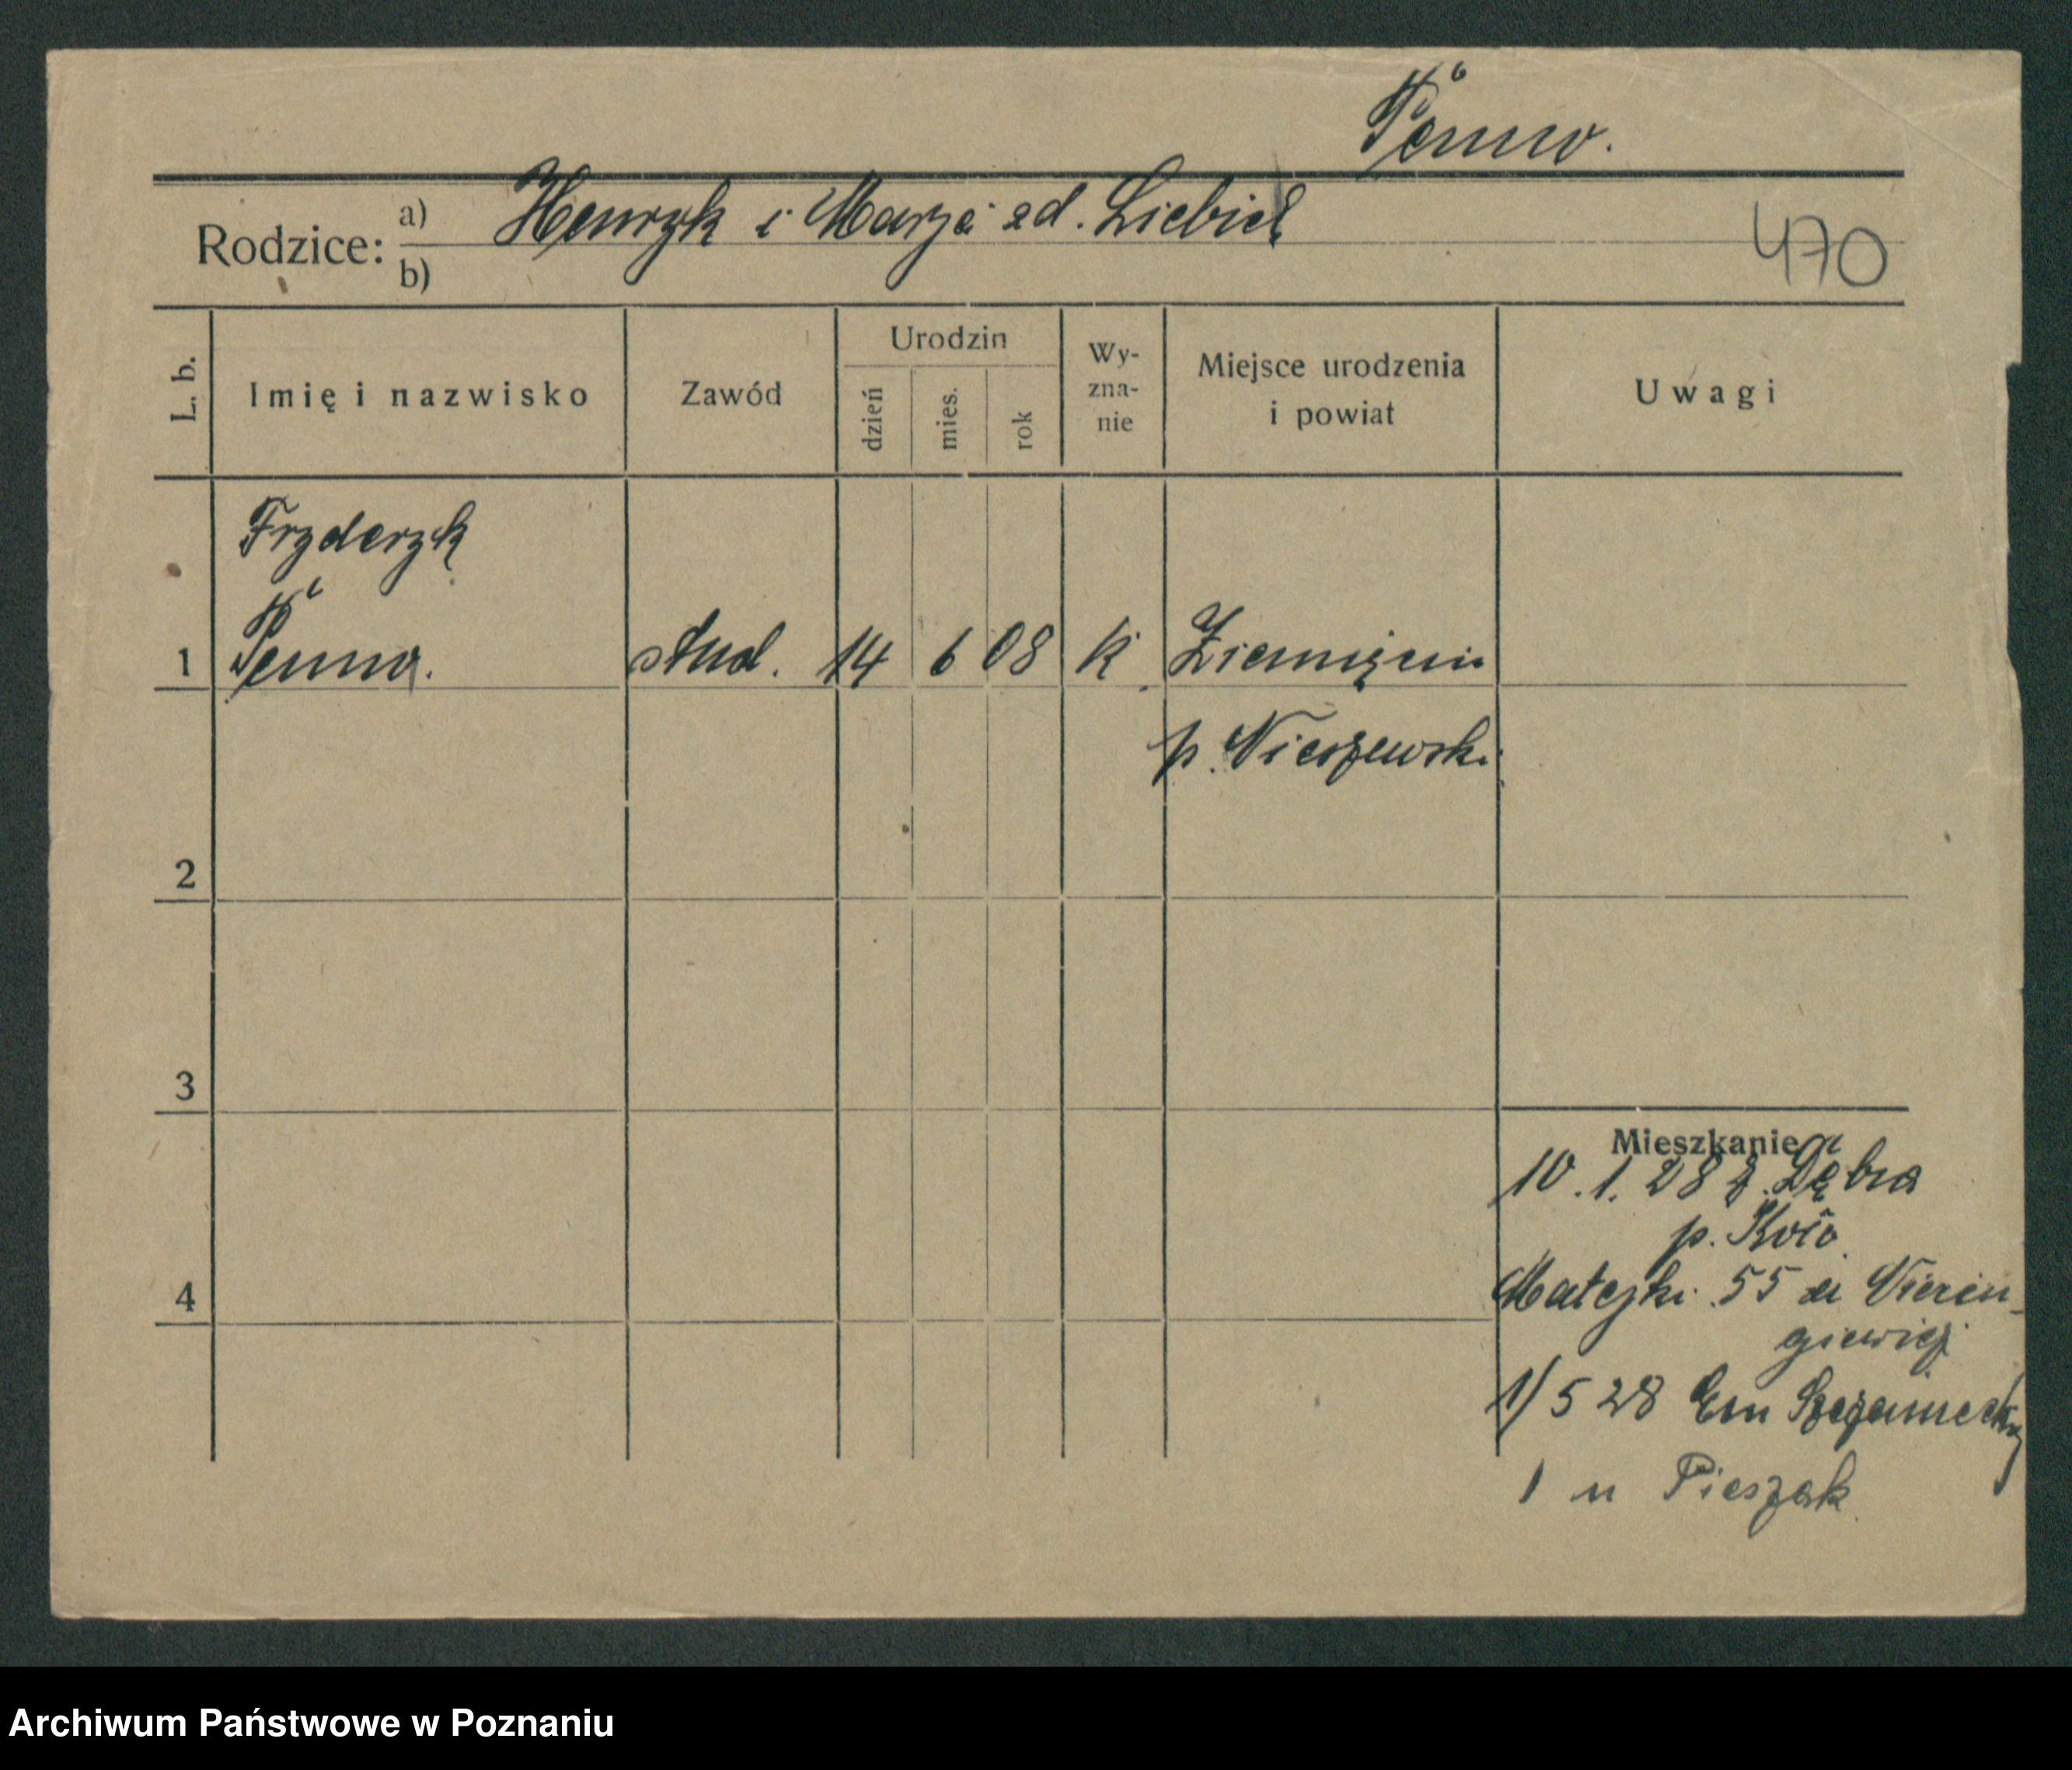 Penno.
Rodzice: a) Henryk i Marja zd. Liebich
b)
470
L. b. Imię i nazwisko Zawód Urodzin dzień mies. rok Wy-zna-nie Miejsce urodzenia i powiat Uwagi
Fryderyk
1 Penno. stud. 14 6 08 k Ziemięcin
p. Nieszewski
2
3
Mieszkanie
10.1.28 z. Dębna
p. Koło
4 Matejki 55 u
1/5 28 Em Szczanieckiej
1 u Pieszak
Archiwum Państwowe w Poznaniu